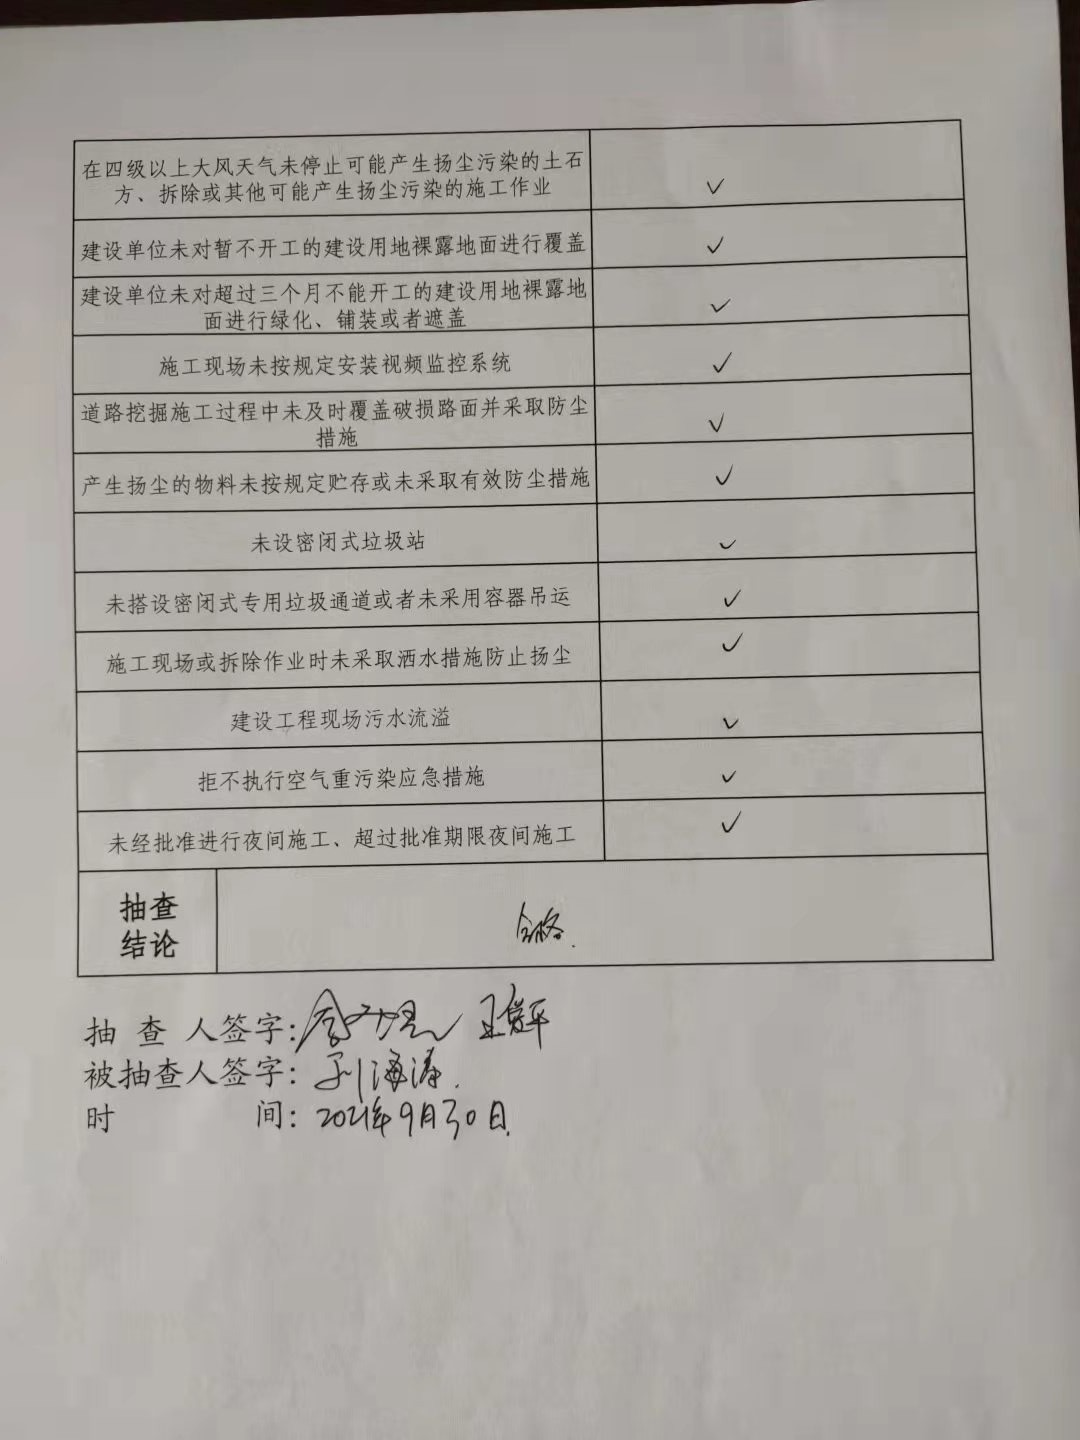 在四级以上大风天气未停止可能产生扬尘污染的土石
方、拆除或其他可能产生扬尘污染的施工作业 ✓
建设单位未对暂不开工的建设用地裸露地面进行覆盖 ✓
建设单位未对超过三个月不能开工的建设用地裸露地
面进行绿化、铺装或者遮盖 ✓
施工现场未按规定安装视频监控系统 ✓
道路挖掘施工过程中未及时覆盖破损路面并采取防尘
措施 ✓
产生扬尘的物料未按规定贮存或未采取有效防尘措施 ✓
未设密闭式垃圾站 ✓
未搭设密闭式专用垃圾通道或者未采用容器吊运 ✓
施工现场或拆除作业时未采取洒水措施防止扬尘 ✓
建设工程现场污水流溢 ✓
拒不执行空气重污染应急措施 ✓
未经批准进行夜间施工、超过批准期限夜间施工 ✓
抽查
结论
合格.
抽 查 人签字:
被抽查人签字: 刘海涛.
时 间: 2021年9月30日.